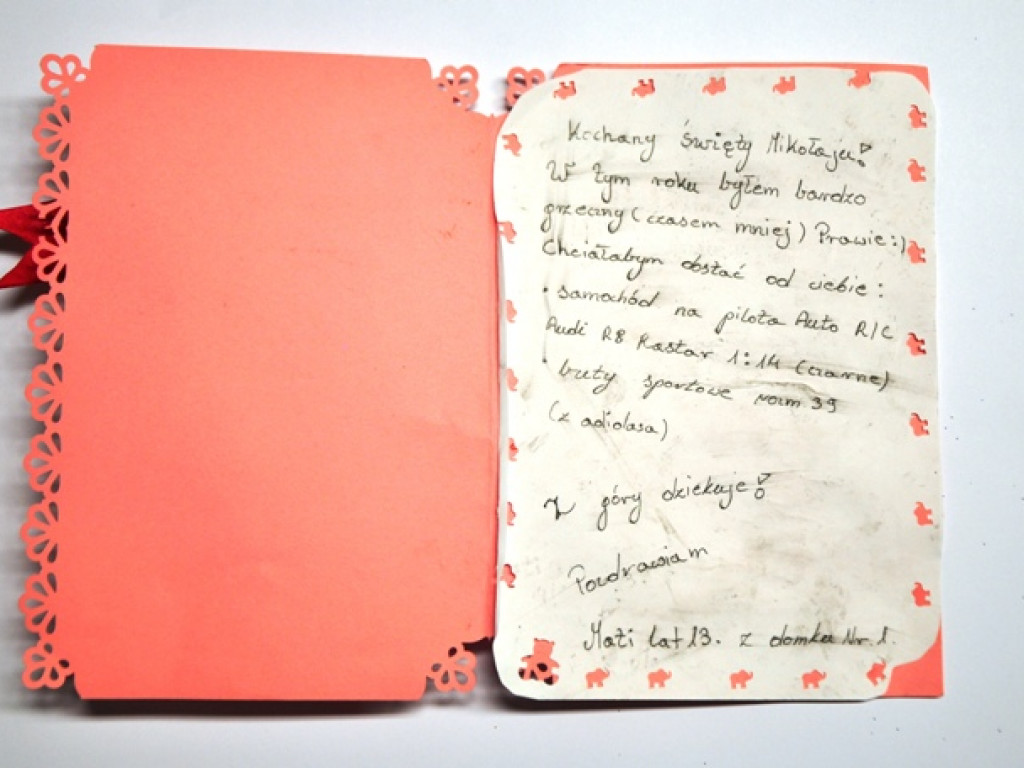 Kochany święty Mikołaju!
W tym roku byłem bardzo
grzeczny (czasem mniej) Prawie :)
Chciałabym dostać od ciebie :
• samochód na pilota Auto R/C
Audi R8 Rastar 1:14 (czarne)
• buty sportowe rozm 39
(z adidasa)
Z góry dziekuje!
Pozdrawiam
Mati lat 13. z domku Nr. 1.